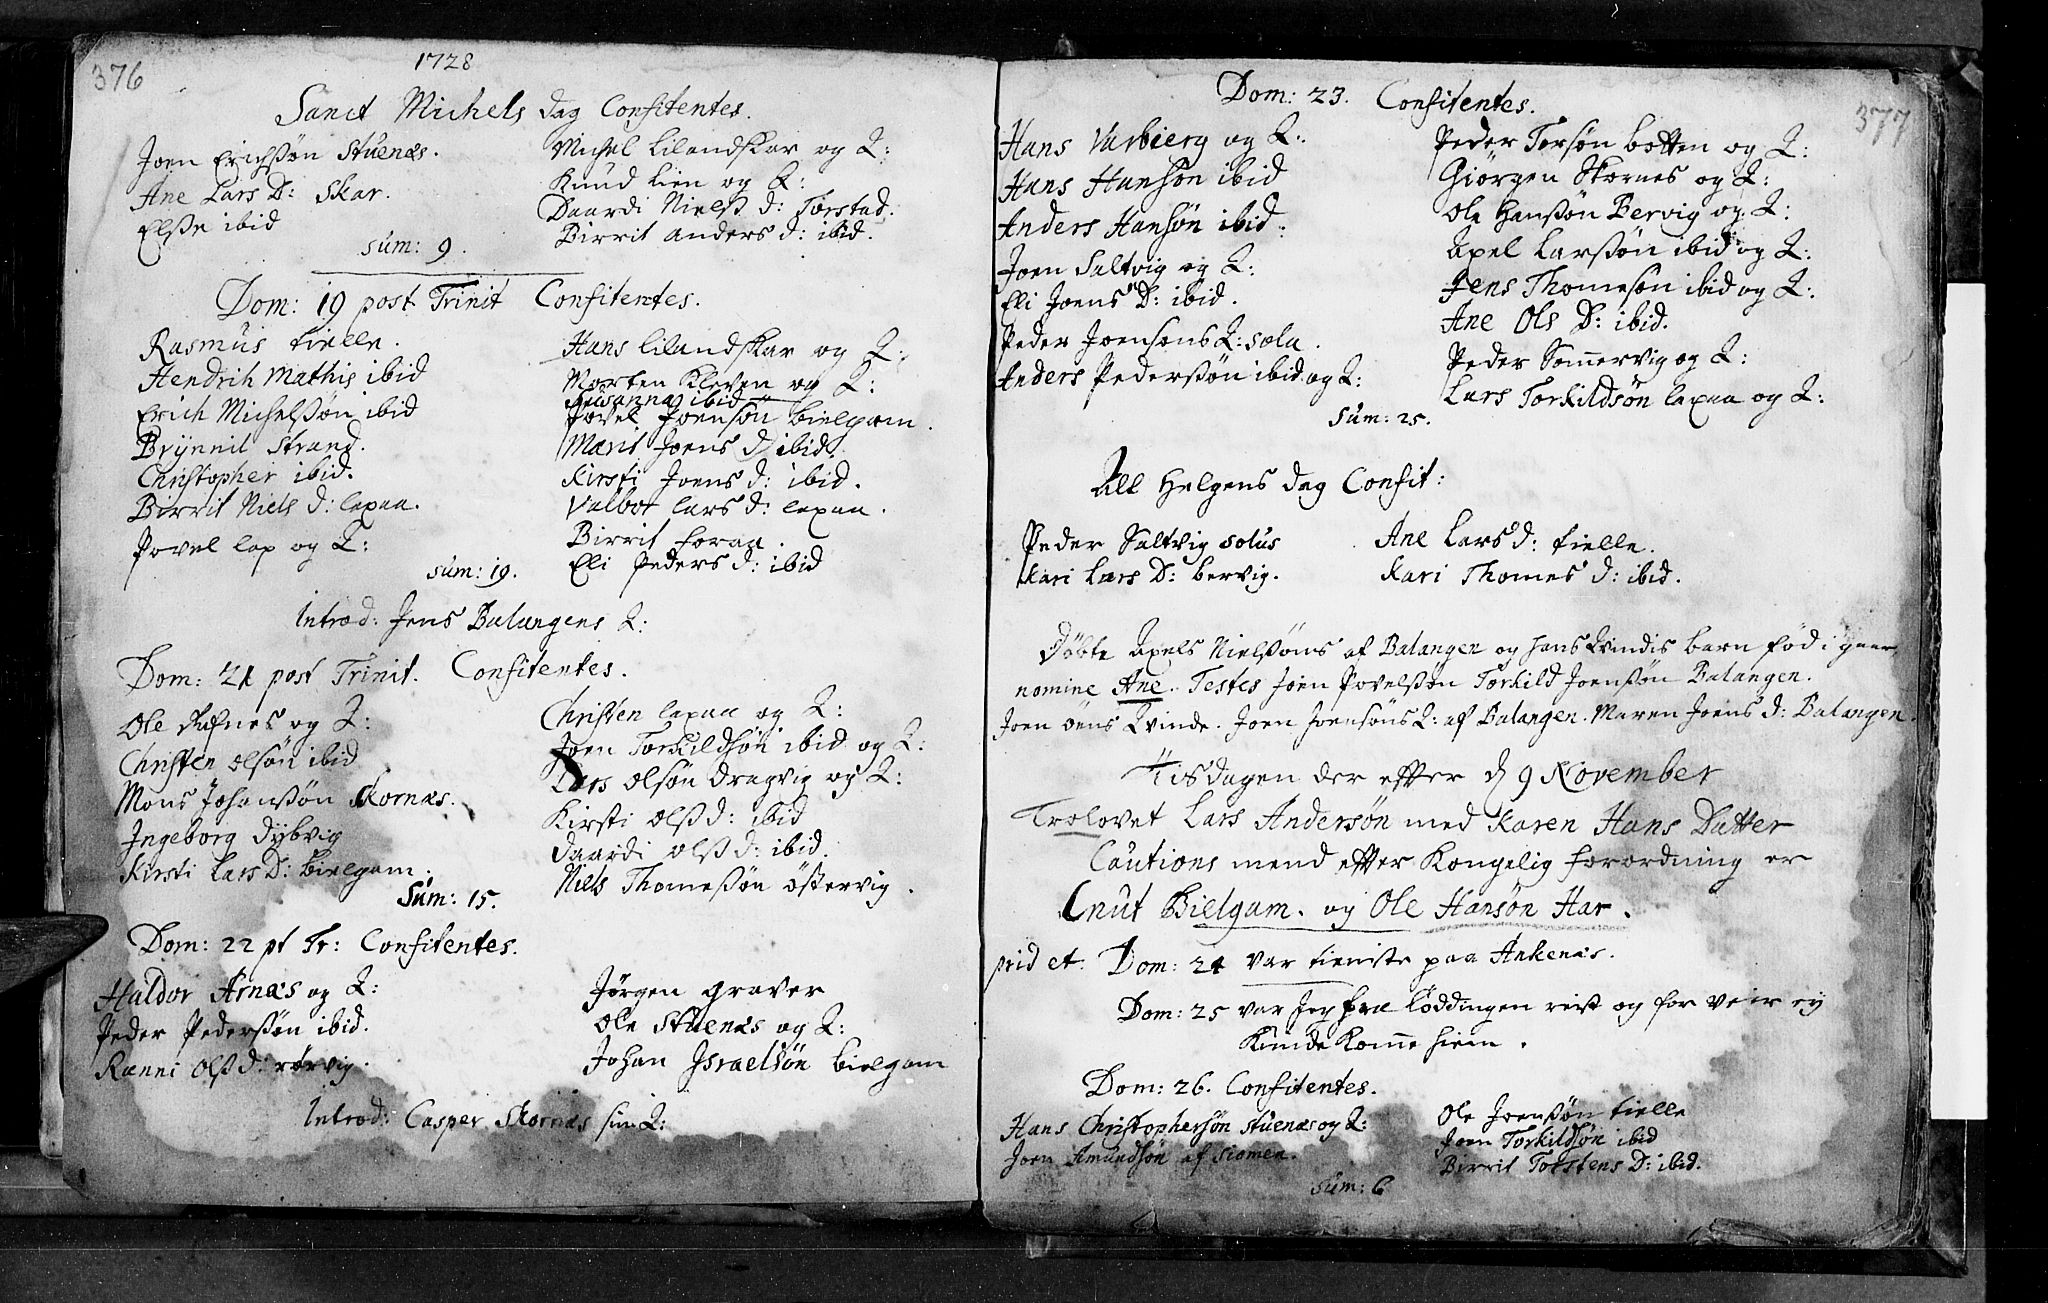 376
1728
Sanct Michels dag Confitentes.
Joen Erichssøn Stuenæs.
Ane Lars D: Skar.
Elsse ibid
Michel Lilandskar og Q:
Knud Lien og Q:
Daardi Nielss d: Torstad.
Birrit Anders d: ibid.
sum: 9.
Dom: 19 post Trinit Confitentes.
Rasmus fielle.
Hendrik Mathis ibid
Erich Michelssøn ibid
Brÿnnil Strand.
Christopher ibid.
Birrit Niels d: lexaa.
Povel lap og Q:
Hans lilandskar og Q:
Morten Kleven og Q:
Susanna ibid
Povel Joensøn bielgam.
Marit Joens d: ibid.
Kirsti Joens d: ibid.
Valbor Lars d: lexaa.
Birrit foraa.
Eli Peders d: ibid
sum: 19.
Introd: Jens Balangens Q:
Dom: 21 post Trinit. Confitentes.
Ole og Q:
Christen olsøn ibid
Mons Johanssøn Skornæs.
Ingeborg Dybvig
Kirsti Lars D: bielgam.
Christen lexaa og Q:
Joen Torkildsøn ibid og Q:
Lars olsøn dragvig og Q:
Kirsti olss d: ibid
Daardi olss d: ibid.
Niels Thomessøn östervig.
Sum: 15.
Dom: 22 pt Tr: Confitentes.
Haldor Arnæs og Q:
Peder Pederssøn ibid.
Ranni Olss d: rørvig.
Jørgen graver
Ole Stuenæs og Q:
Johan Israelsøn bielgam
Introd: Casper Skornæs sin Q:
377
Dom: 23. Confitentes.
Hans Varbierg og Q:
Hans Hansøn ibid
Anders Hansøn ibid.
Joen Saltvig og Q:
Eli Joens D: ibid.
Peder Joensøns Q: sola.
Anders Pederssøn ibid og Q:
Peder Torsøn botten og Q:
Giörgen Skornes og Q:
Ole Hanssøn Bervig og Q:
Axel Larssøn ibid og Q:
Jens Thomesøn ibid og Q:
Ane Ols D: ibid.
Peder Somervig og Q:
Lars Torkildsøn lexaa og Q:
Sum: 25.
All Helgens dag Confit:
Peder Saltvig solus
Kari Lars D: bervig.
Ane Lars d: fielle.
Kari Thomes d: ibid.
Döbte Axels Nielssøns af Balangen og hans Qvindis barn fød i gaar
nomine Ane. Testes Joen Povelssøn Torkild Joenssøn Balangen.
Joen öens Qvinde. Joen Joensøns Q: af Balangen. Maren Joens d: Balangen.
Tisdagen der efter d 9 November
Trolovet Lars Andersøn med Karen Hans Datter
Cautions mend efter Kongelig forordning er
Cnut Bielgam. og Ole Hansøn Har.
prid et. Dom: 24 var tieniste paa Ankenæs.
Dom: 25 var Jeg fra löddingen reist og for veir ey
Kunde Komme hiem.
Dom: 26. Confitentes.
Hans Christophersøn stuenæs og Q:
Joen Amundsøn af siomen.
Ole Joenssøn fielle
Joen Torkildsøn ibid
Birrit Torstens D: ibid.
sum: 6